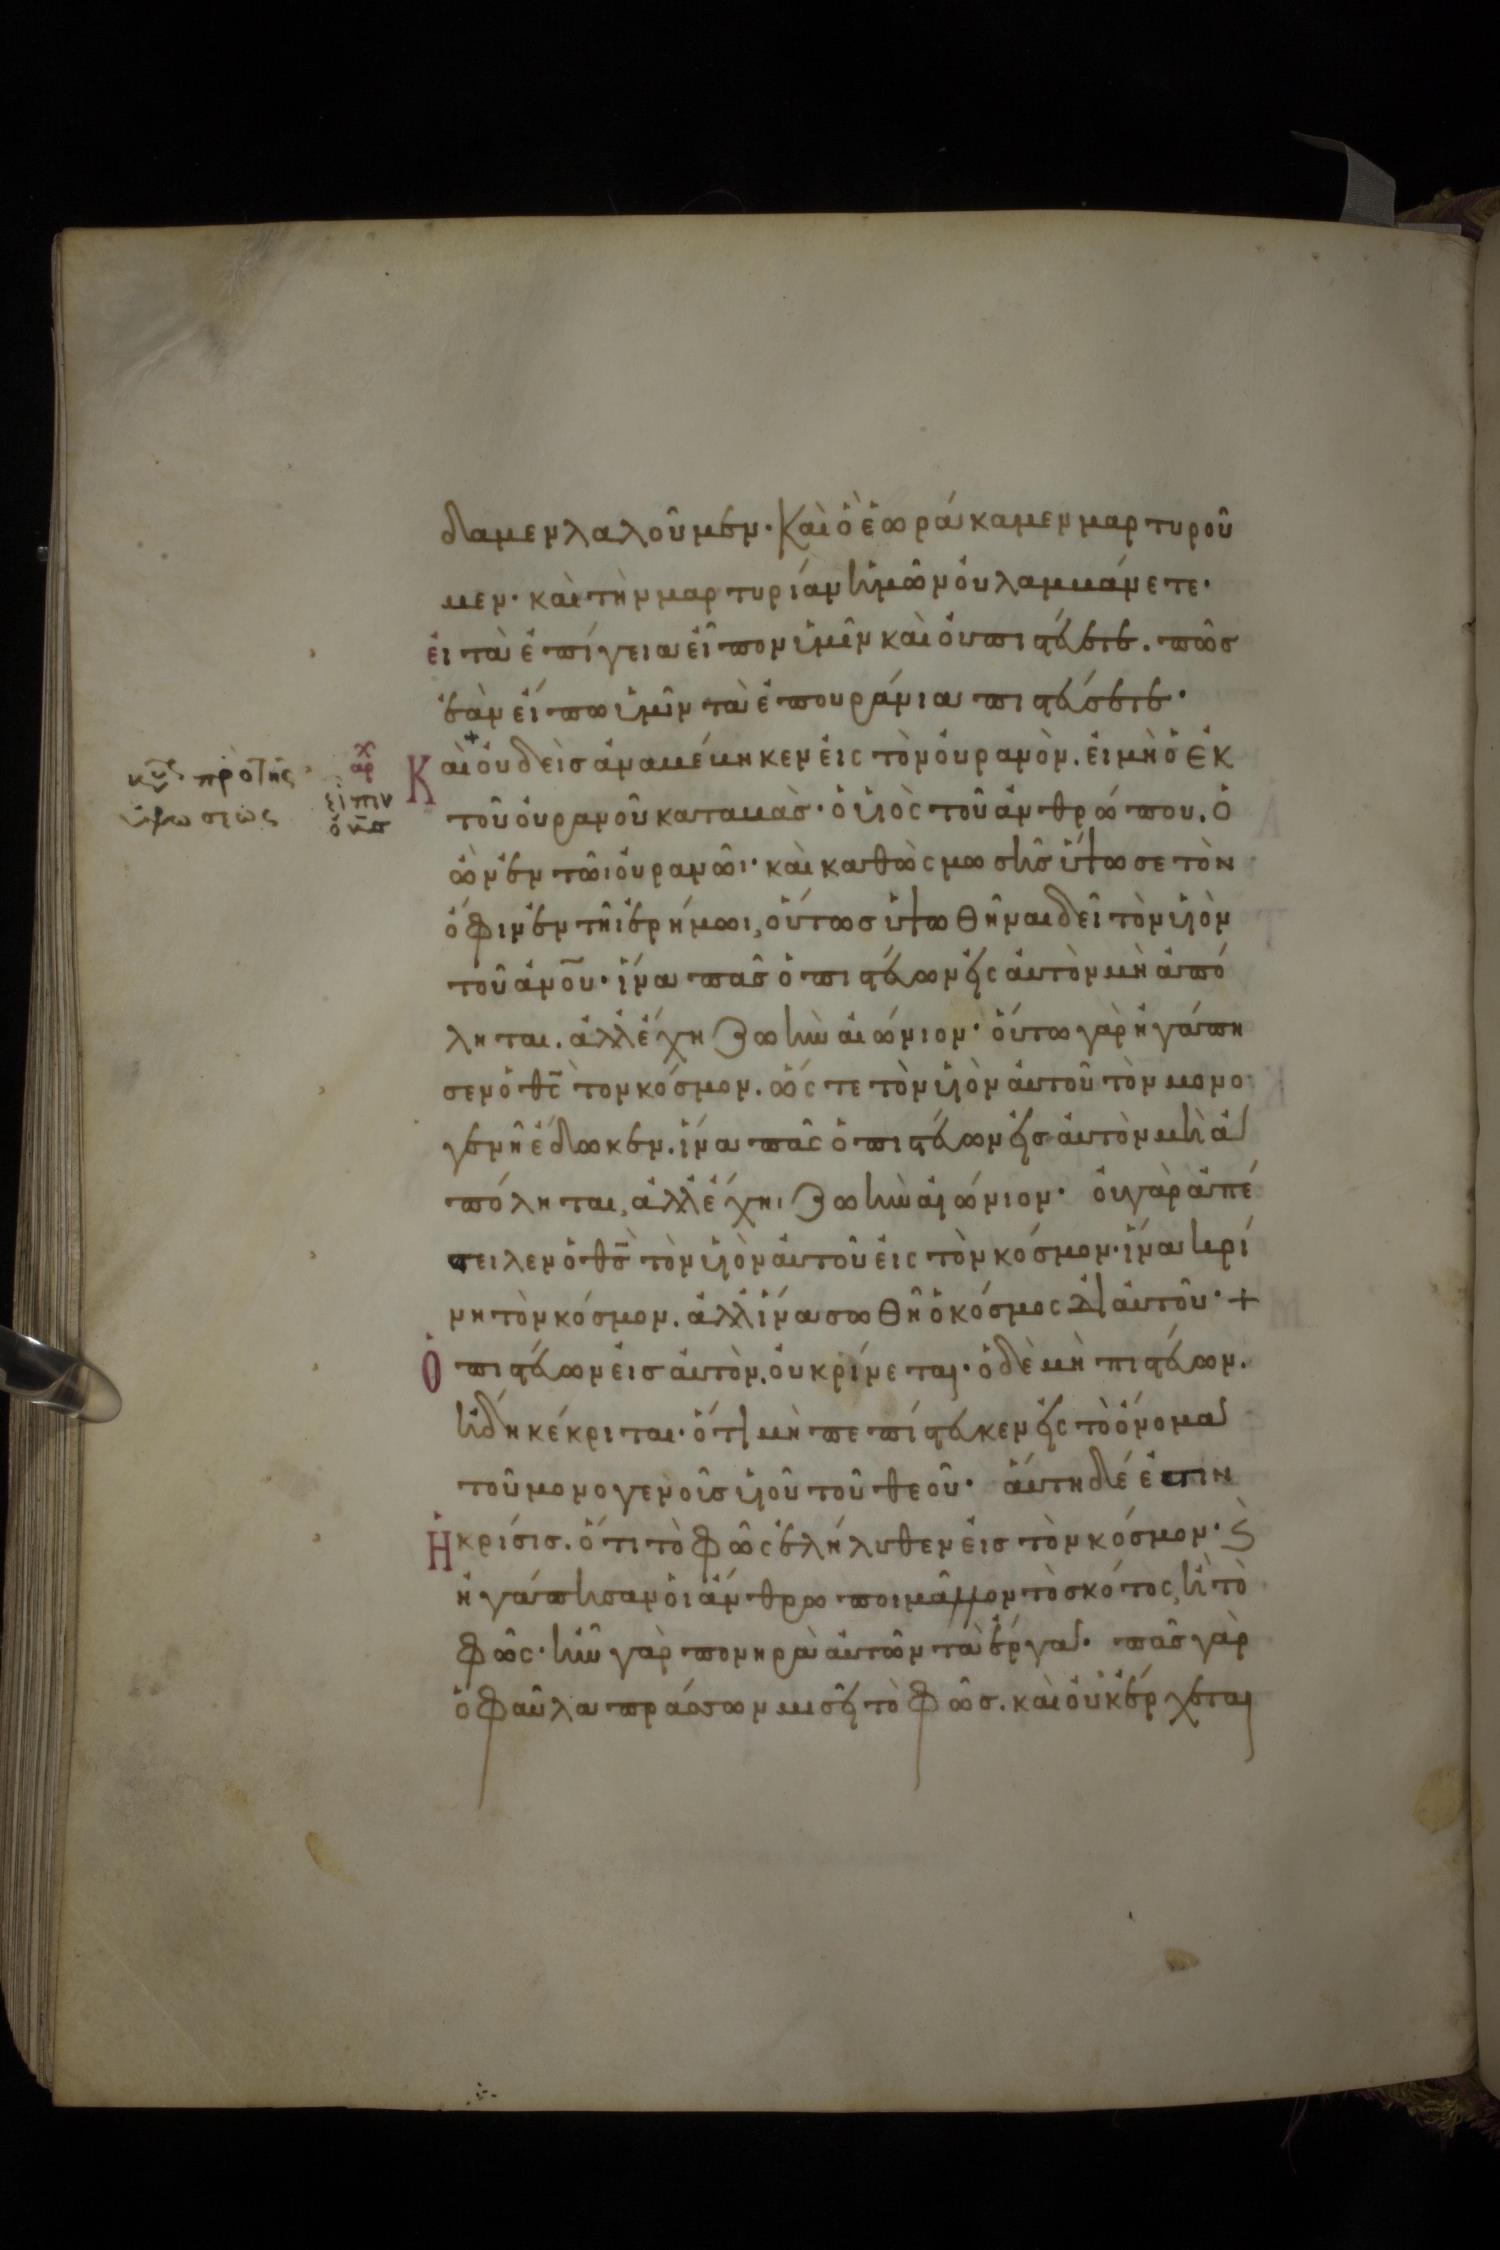 δαμεν λαλοῦμεν· καὶ ὃ ἑωράκαμεν μαρτυροῦ
μεν· καὶ τὴν μαρτυρίαν ἡμῶν οὐ λαμβάνετε·
εἰ τὰ ἐπίγεια εἶπον ὑμῖν καὶ οὐ πιστεύετε. πῶς
ἐὰν εἴπω ὑμῖν τὰ ἐπουράνια πιστεύσετε·
Καὶ οὐδεὶς ἀναβέβηκεν εἰς τὸν οὐρανὸν. εἰ μὴ ὁ ἐκ
τοῦ οὐρανοῦ καταβὰς· ὁ υἱὸς τοῦ ἀνθρώπου. ὁ
ὢν ἐν τῶι οὐρανῶι· καὶ καθὼς μωσῆς ὕψωσε τὸν
ὄφιν ἐν τῆι ἐρήμωι, οὕτως ὑψωθῆναι δεῖ τὸν υἱὸν
τοῦ ἀνου· ἵνα πᾶς ὁ πιστεύων εἰς αὐτὸν μὴ ἀπό
ληται. ἀλλ' ἔχη ζωὴν αἰώνιον· οὕτω γὰρ ἠγάπη
σεν ὁ θς τὸν κόσμον. ὥστε τὸν υἱὸν αὐτοῦ τὸν μονο
γενῆ ἔδωκεν. ἵνα πᾶς ὁ πιστεύων εἰς αὐτὸν μὴ ἀ
πόληται, ἀλλ' ἔχηι ζωὴν αἰώνιον· οὐ γὰρ ἀπέ
στειλεν ὁ θς τὸν υἱὸν αὐτοῦ εἰς τὸν κόσμον· ἵνα κρί
νη τὸν κόσμον. ἀλλ' ἵνα σωθῆ ὁ κόσμος δι αὐτοῦ· +
Ὁ πιστεύων εἰς αὐτὸν. οὐ κρίνεται· ὁ δὲ μὴ πιστεύων.
ἤδη κέκριται· ὅτι μὴ πεπίστευκεν εἰς τὸ ὄνομα
τοῦ μονογενοῦς υἱοῦ τοῦ θεοῦ· αὕτη δέ ἐστιν
Ἡ κρίσις. ὅτι τὸ φῶς ἐλήλυθεν εἰς τὸν κόσμον· ϗ
ἠγάπησαν οἱ ἄνθρωποι μᾶλλον τὸ σκότος, ἢ τὸ
φῶς· ἦν γὰρ πονηρὰ αὐτῶν τὰ ἔργα· πᾶς γὰρ
ὁ φαῦλα πράσσων μισεῖ τὸ φῶς. καὶ οὐκ ἔρχεται
πρὸ τῆς
ὑψώσεως
ἀρ
εἶπεν
ὁ κς